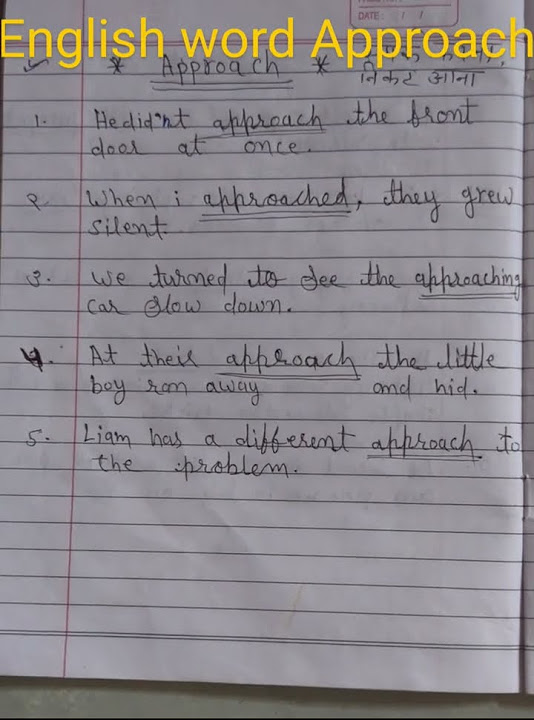 DATE: / /
English word Approach
* Approach *
निकट आना
1. He didn't approach the front
door at once.
2. When i approached, they grew
silent
3. We turned to see the approaching
car slow down.
4. At their approach the little
boy ran away and hid.
5. Liam has a different approach to
the problem.